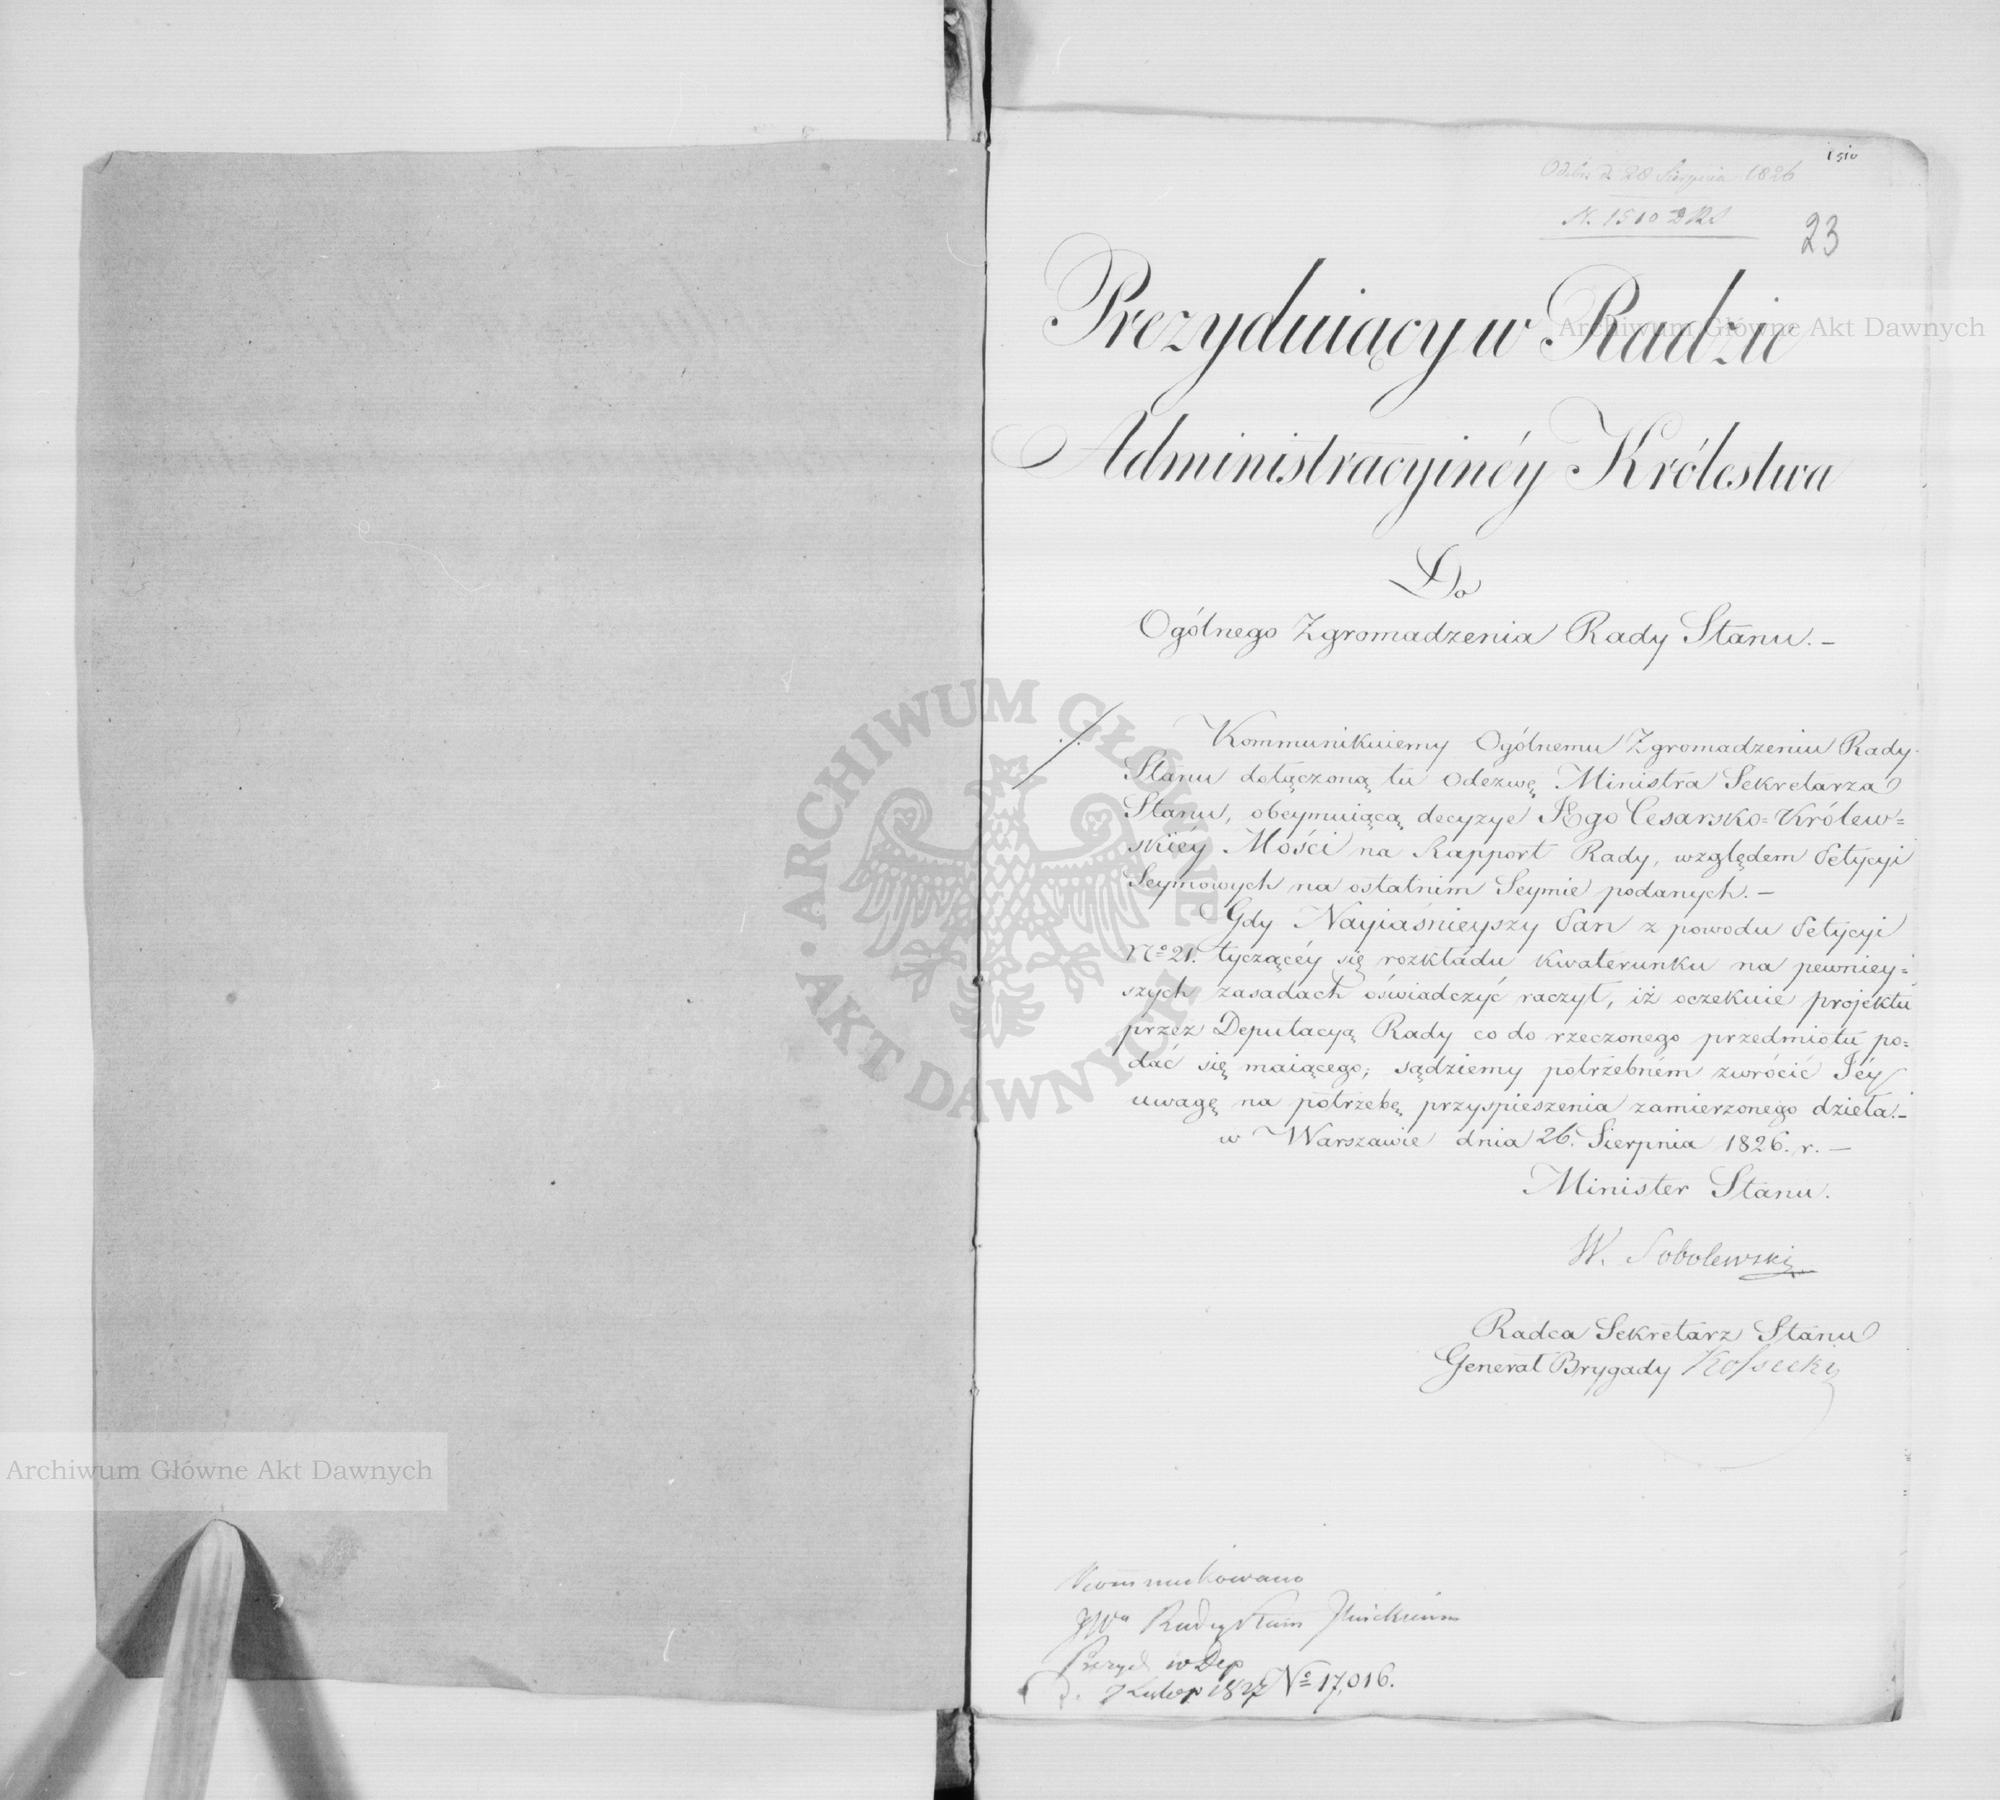 1510
Odebr. d. 28 Sierpnia 1826
N. 1510
23
Prezyduiący w Radzie
Administracyinéy Królestwa
Do
Ogólnego Zgromadzenia Rady Stanu.—
Kommunikuiemy Ogólnemu Zgromadzeniu Rady
Stanu dołączoną tu Odezwę Ministra Sekretarza
Stanu, obeymuiącą decyzye JEgo Cesarsko=Królew=
skiéy Mości na Rapport Rady, względem Petycyi
Seymowych na ostatnim Seymie podanych.—
Gdy Nayiaśnieyszy Pan z powodu Petycyi
No 21. tyczącéy się rozkładu kwaterunku na pewniey=
szych zasadach oświadczyć raczył, iż oczekuie projektu
przez Deputacyą Rady co do rzeczonego przedmiotu po=
dać się maiącego; sądziemy potrzebném zwrócić Jéy
uwagę na potrzebę przyspieszenia zamierzonego dzieła.—
w Warszawie dnia 26. Sierpnia 1826. r.—
Minister Stanu.
W. Sobolewski
Radca Sekretarz Stanu
Generał Brygady Kossecki
Kommunikowano
JWu Radcy Stanu
Prezyd w Dep
d. 7 Lutego 1827 No 17,016.
Archiwum Główne Akt Dawnych
Archiwum Główne Akt Dawnych
· ARCHIWUM GŁÓWNE · AKT DAWNYCH